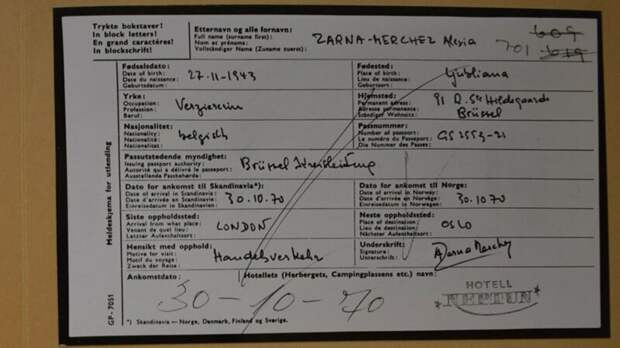 Trykte bokstaver!
In block letters!
En grand caractères!
In blockschrift!
Etternavn og alle fornavn:
Full name (surname first):
Nom et prénoms:
Vollständiger Name (Zuname zuerst):
ZARNA-MERCHEZ Alexia
609
701 619
Fødselsdato:
Date of birth:
Date du naissance:
Geburtsdatum:
27-11-1943
Fødested:
Place of birth:
Lieu de naissance:
Geburtsort:
Ljubliana
Yrke:
Occupation:
Profession:
Beruf:
Verzierein
Hjemsted:
Permanent adress:
Adresse permanente:
Ständiger Wohnsitz:
91 R. Ste Hildegaarde
Brüssel
Nasjonalitet:
Nationality:
Nationalité:
Nationalitet:
belgisch
Passnummer:
Number of passport:
Le numéro du Passeport:
Die Nummer des Passes:
Passutstedende myndighet:
Issuing passport authority:
Autorité qui a délivré le passeport:
Ausstellende Passbehörde:
Brüssel Kreisleitung
Dato for ankomst til Skandinavia*):
Date of arrival in Scandinavia:
Date d'arrivée en Scandinavie:
Einreisedatum in Skandinavien:
30.10.70
Dato for ankomst til Norge:
Date of arrival in Norway:
Date d'arrivée en Norvège:
Einreisedatum in Norwegen:
30.10.70
Siste oppholdssted:
Arrival from what place:
Venant de quel lieu:
Letzter Aufenthaltsort:
LONDON
Neste oppholdssted:
Place of destination:
Lieu de destination:
Nächster Aufenthaltsort:
OSLO
Hensikt med opphold:
Motive for visit:
Motif du voyage:
Zweck der Reise:
Handelsverkehr
Underskrift:
Signature:
Unterschrift:
AZarna Merchez
Ankomstdato:
Hotellets (Herbergets, Campingplassens etc.) navn:
30-10-70
HOTELL
NEPTUN
*) Skandinavia — Norge, Danmark, Finland og Sverige.
Meldeskjema for utlending
GP-7051